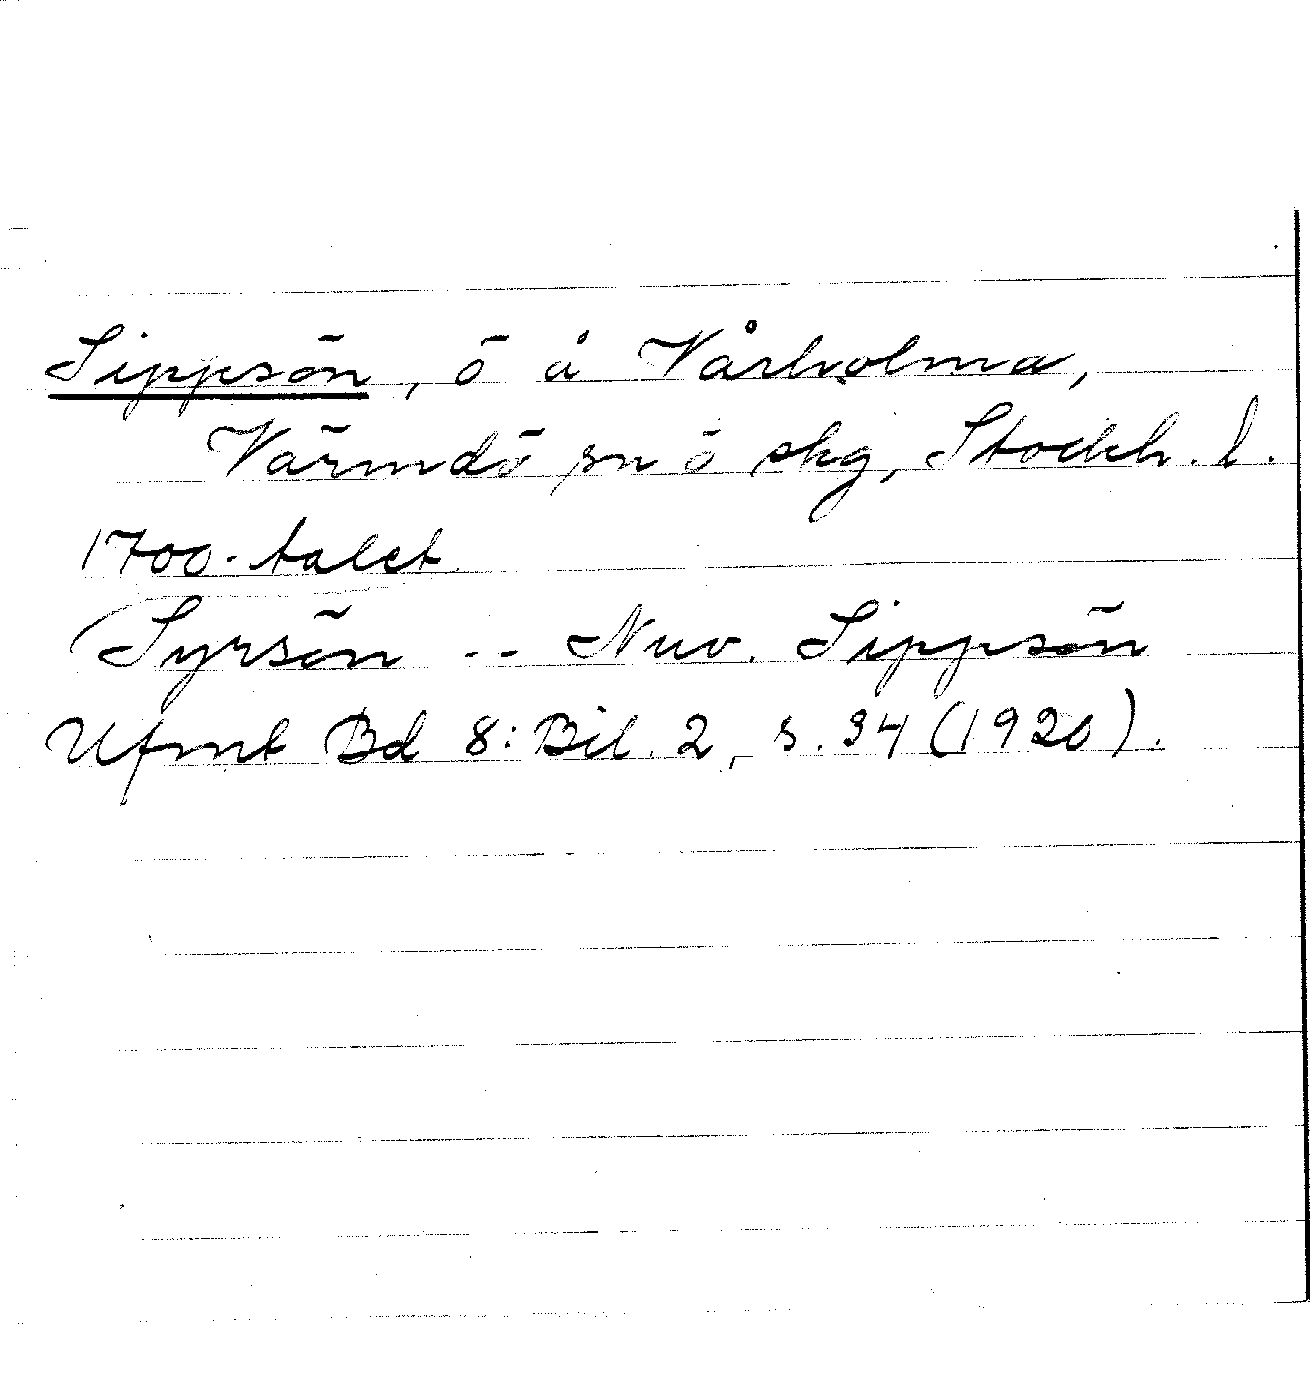 Sippsön, ö å Vårholma,
Värmdö sn o skg, Stockh. l.
1700-talet
(Syrsön -- Nuv. Sippsön
Ufmt Bd 8: Bil. 2, s. 34 (1920).